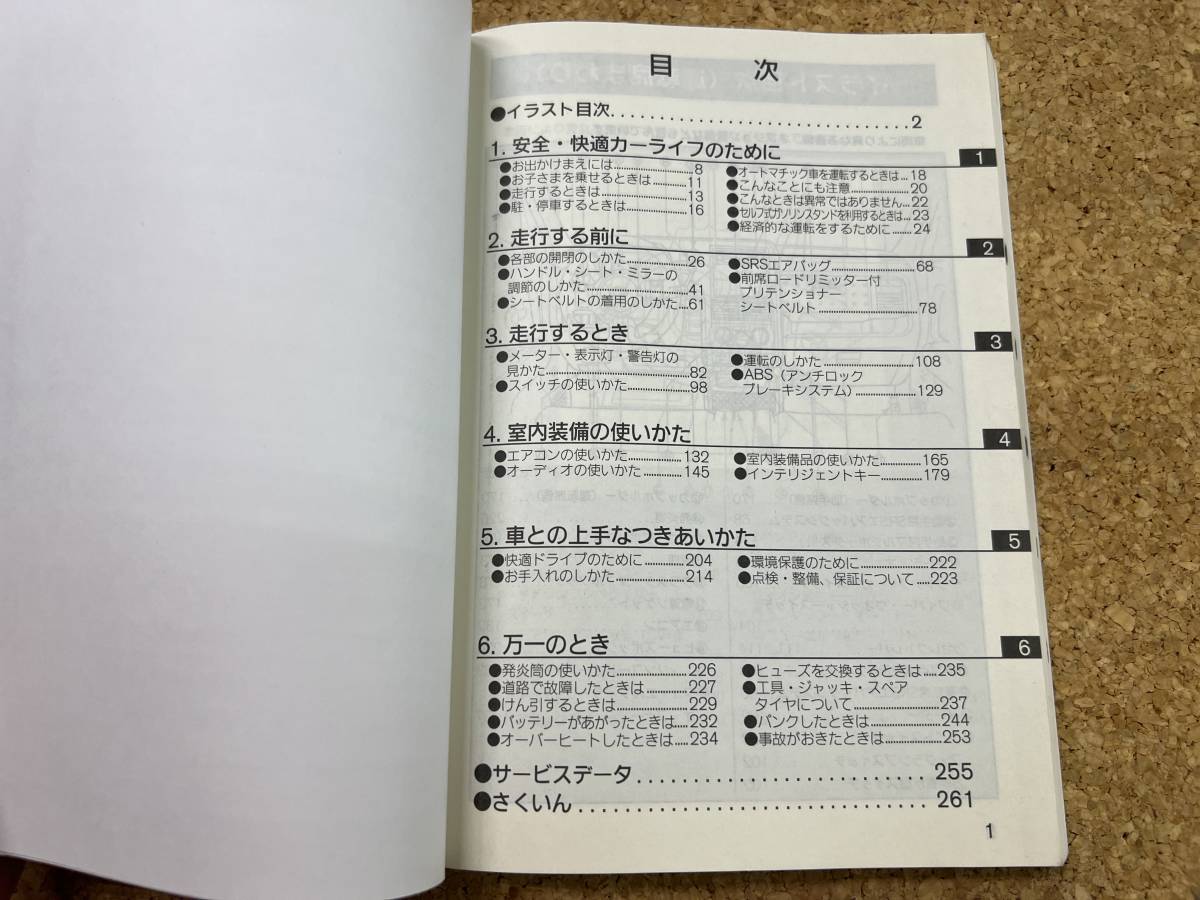 目 次
●イラスト目次................................2
1. 安全・快適カーライフのために
1
●お出かけまえには................8
●お子さまを乗せるときは..........11
●走行するときは................13
●駐・停車するときは................16
●オートマチック車を運転するときは...18
●こんなことにも注意................20
●こんなときは異常ではありません...22
●セルフ式ガソリンスタンドを利用するときは...23
●経済的な運転をするために........24
2. 走行する前に
2
●各部の開閉のしかた................26
●ハンドル・シート・ミラーの
調節のしかた................41
●シートベルトの着用のしかた...61
●SRSエアバッグ................68
●前席ロードリミッター付
プリテンショナー
シートベルト................78
3. 走行するとき
3
●メーター・表示灯・警告灯の
見かた................82
●スイッチの使いかた................98
●運転のしかた................108
●ABS（アンチロック
ブレーキシステム）................129
4. 室内装備の使いかた
4
●エアコンの使いかた................132
●オーディオの使いかた............145
●室内装備品の使いかた............165
●インテリジェントキー............179
5. 車との上手なつきあいかた
5
●快適ドライブのために............204
●お手入れのしかた................214
●環境保護のために................222
●点検・整備、保証について....223
6. 万一のとき
6
●発炎筒の使いかた................226
●道路で故障したときは............227
●けん引するときは................229
●バッテリーがあがったときは....232
●オーバーヒートしたときは.....234
●ヒューズを交換するときは....235
●工具・ジャッキ・スペア
タイヤについて................237
●パンクしたときは................244
●事故がおきたときは................253
●サービスデータ................................255
●さくいん................................261
1